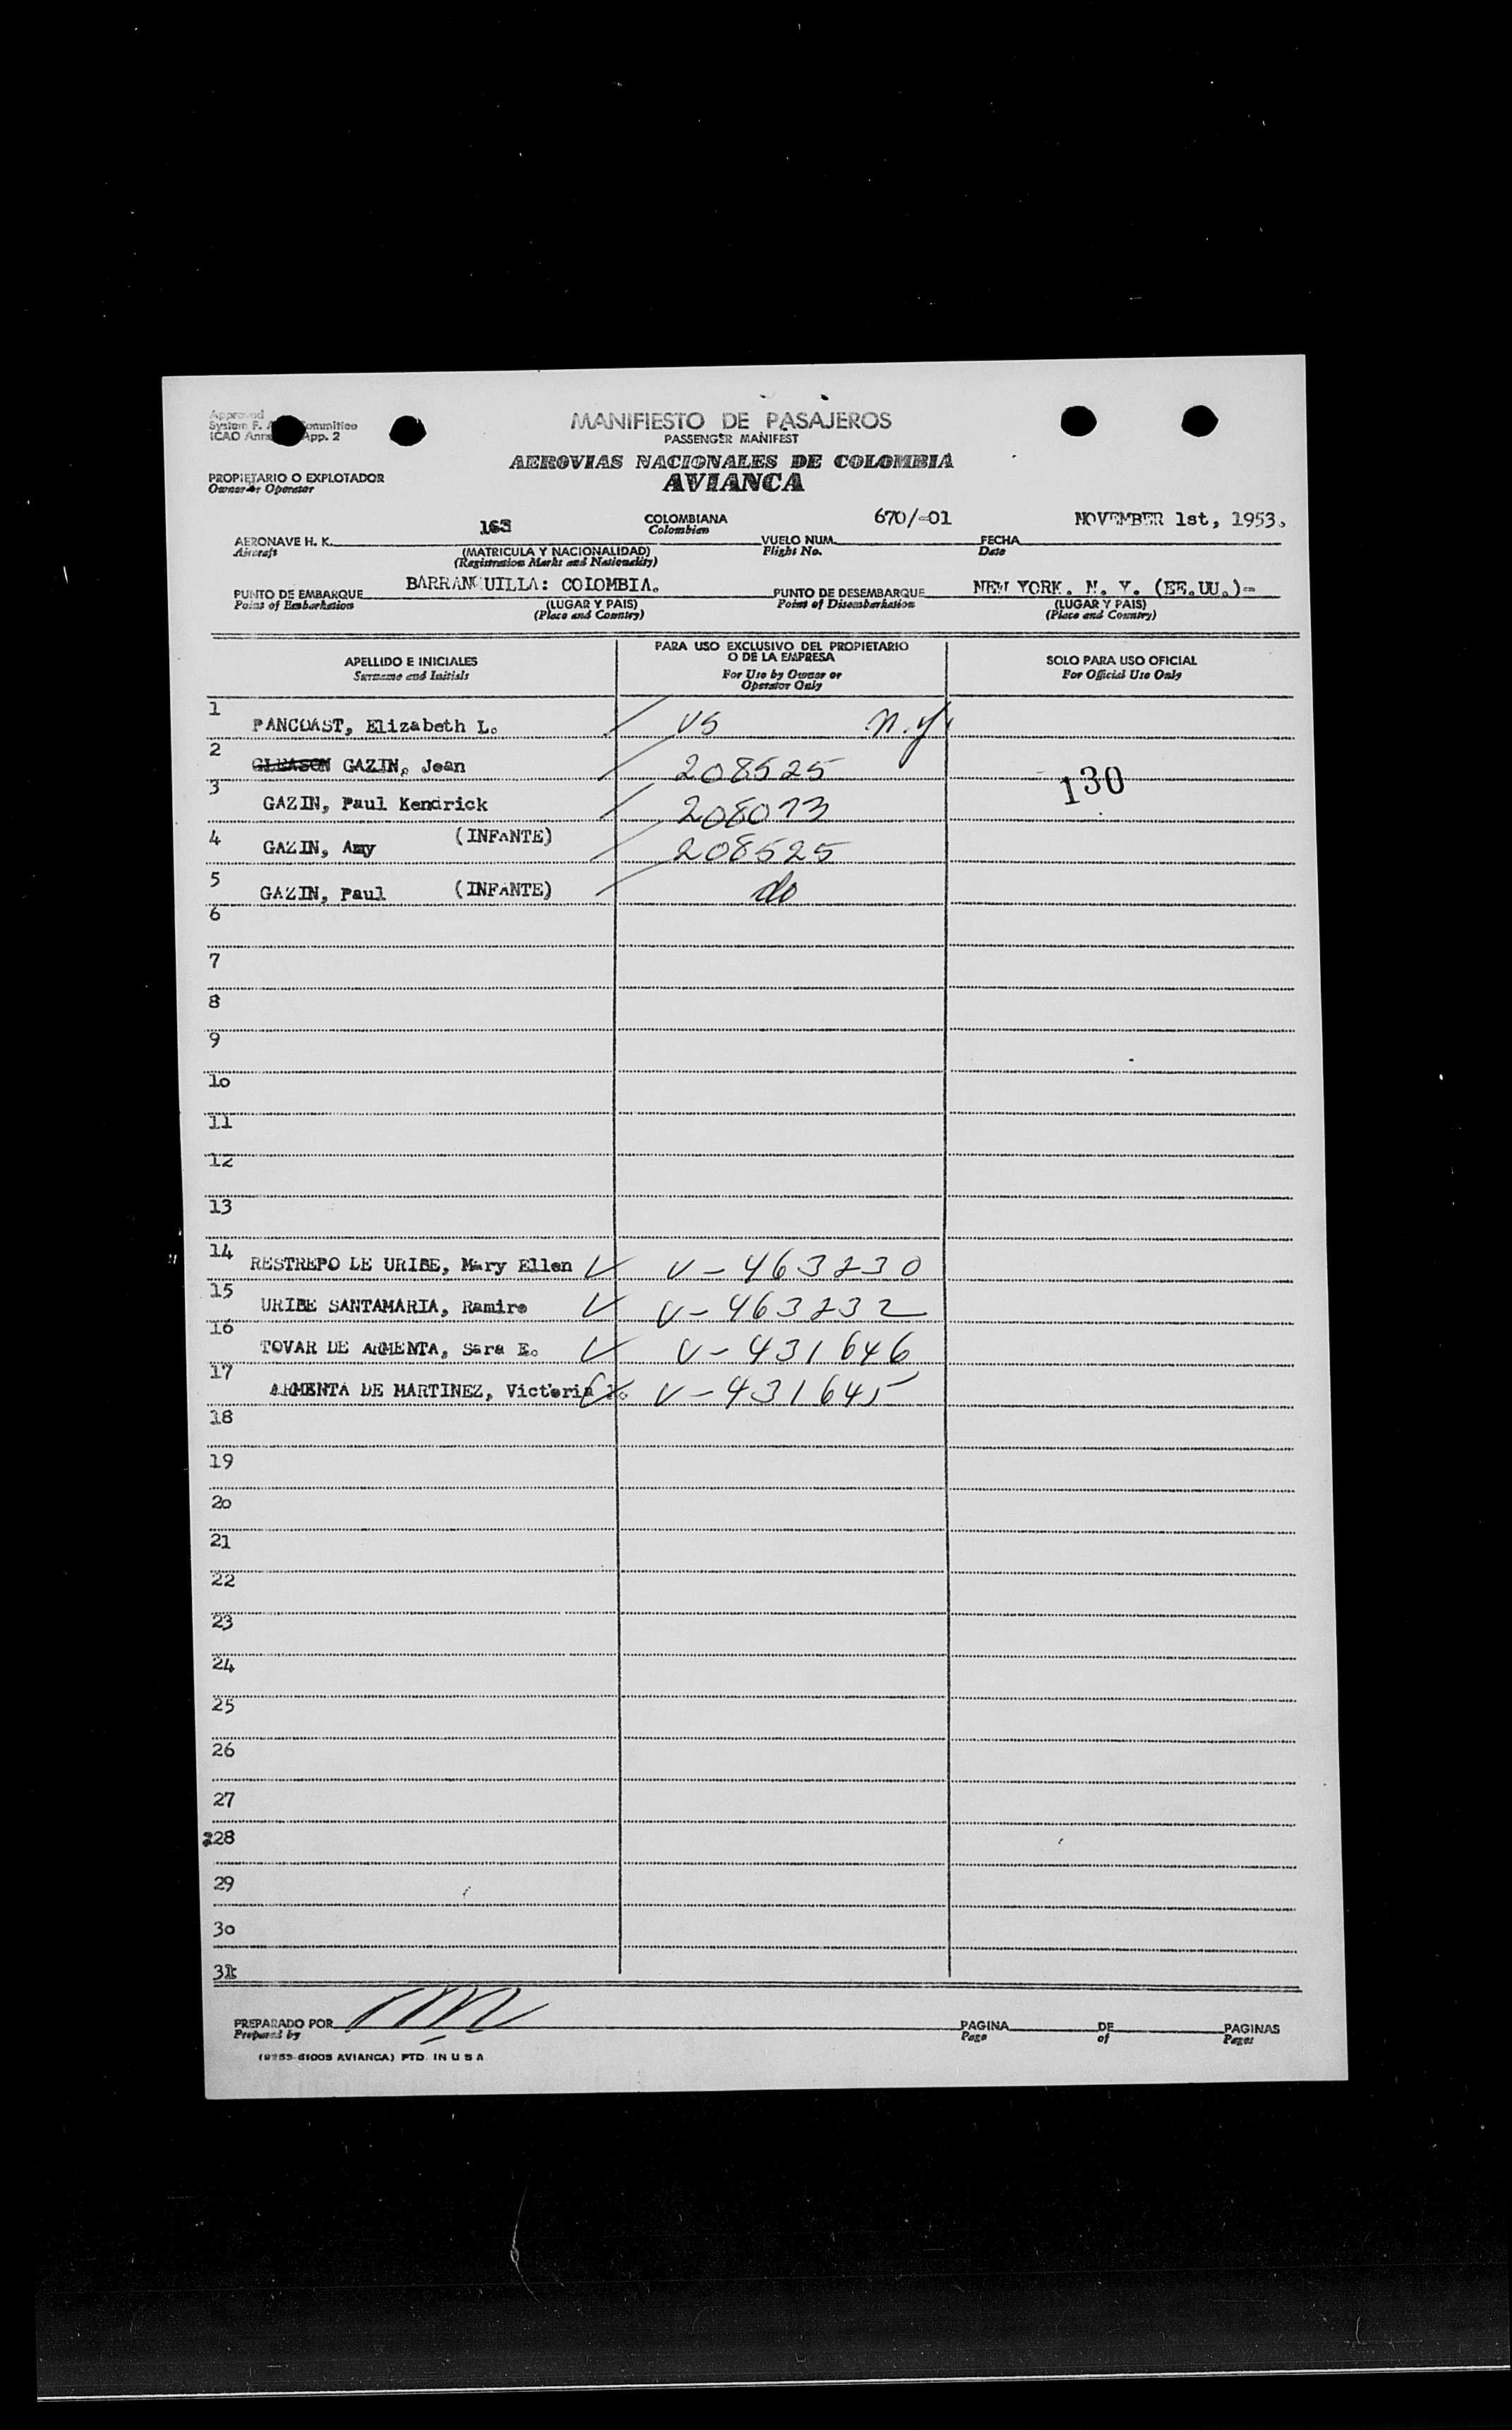 Approved
System F. A. Committee
ICAO Annex App. 2
MANIFIESTO DE PASAJEROS
PASSENGER MANIFEST
AEROVIAS NACIONALES DE COLOMBIA
AVIANCA
PROPIETARIO O EXPLOTADOR
Owner or Operator
163 COLOMBIANA 670/-01 NOVEMBER 1st, 1953.
Colombian
AERONAVE H. K. VUELO NUM. FECHA
Aircraft (MATRICULA Y NACIONALIDAD) Flight No. Date
(Registration Marks and Nationality)
BARRANQUILLA: COLOMBIA. NEW YORK. N. Y. (EE.UU.)=
PUNTO DE EMBARQUE PUNTO DE DESEMBARQUE
Point of Embarkation (LUGAR Y PAIS) Point of Disembarkation (LUGAR Y PAIS)
(Place and Country) (Place and Country)
PARA USO EXCLUSIVO DEL PROPIETARIO
O DE LA EMPRESA
APELLIDO E INICIALES SOLO PARA USO OFICIAL
Surname and Initials For Use by Owner or For Official Use Only
Operator Only
1 PANCOAST, Elizabeth L. US N.Y.
2 GLEASON GAZIN, Jean 208525
130
3 GAZIN, Paul Kendrick 208073
4 GAZIN, Amy (INFANTE) 208525
5 GAZIN, Paul (INFANTE) do
6
7
8
9
10
11
12
13
14 RESTREPO DE URIBE, Mary Ellen V-463230
15 URIBE SANTAMARIA, Ramiro V-463232
16 TOVAR DE ARMENTA, Sara E. V-431646
17 ARMENTA DE MARTINEZ, Victoria V-431645
18
19
20
21
22
23
24
25
26
27
228
29
30
31
PREPARADO POR PAGINA DE PAGINAS
Prepared by Page of Pages
(9253-61005 AVIANCA) PTD. IN U S A